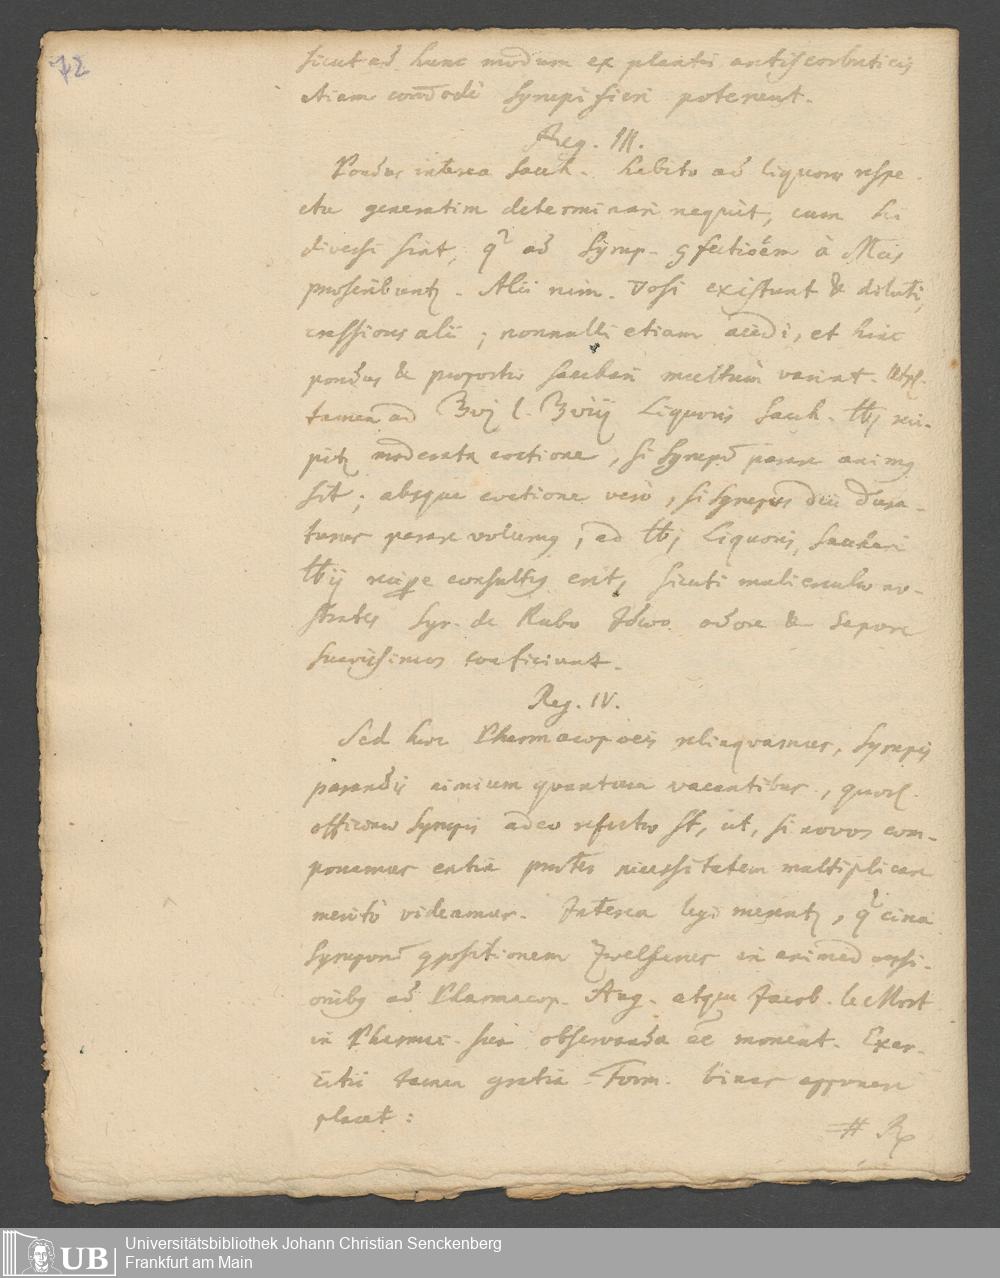 72
sicut ad hunc modum ex plantis antiscorbuticis
etiam com̄odè Syrupi fieri poterunt.
Reg. III.
Pondus interea Sacch. habito ad liquores respe-
ctu generatim determinari nequit, cum hi
diversi sint, q ad Syrup. 9fectiōem à Mcis
proscribunt. Alii nim. dosi existunt & diluti,
crassiores alii; nonnulli etiam acidi, et hinc
pondus & proportio Sacchari multum variat.
tamen ad ℥vj l. ℥viij Liquoris Sacch. ℔j reci-
pit moderata coctione, si Syrupū parare animg
sit; absque coctione verò, si Syrupus diu dura-
turus parare volumg, ad ℔j Liquoris, Sacchari
℔ij recipe consultig erit, sicuti mulierculæ no-
strates Syr. de Rubo Idæo odore & Sapore
suavissimos conficiunt.
Reg. IV.
Sed hoc Pharmacopoeis relinquamus, Syrupis
parandis nimium quantum vacantibus, quor.
officinæ Syrupis adeo refertæ st, ut, si novos com-
ponamus entia præter necessitatem multiplicare
meritò videamur. Interea legi merent, q circa
Syruporū 9positionem Zwelferus in animadversi-
onibg ad Pharmacop. Aug. atque Jacob. le Mort
in Pharmac. sua observanda ēē monent. Exer-
citii tamen gratia Form. binas apponere
placet:
# ℞
UB Universitätsbibliothek Johann Christian Senckenberg
Frankfurt am Main